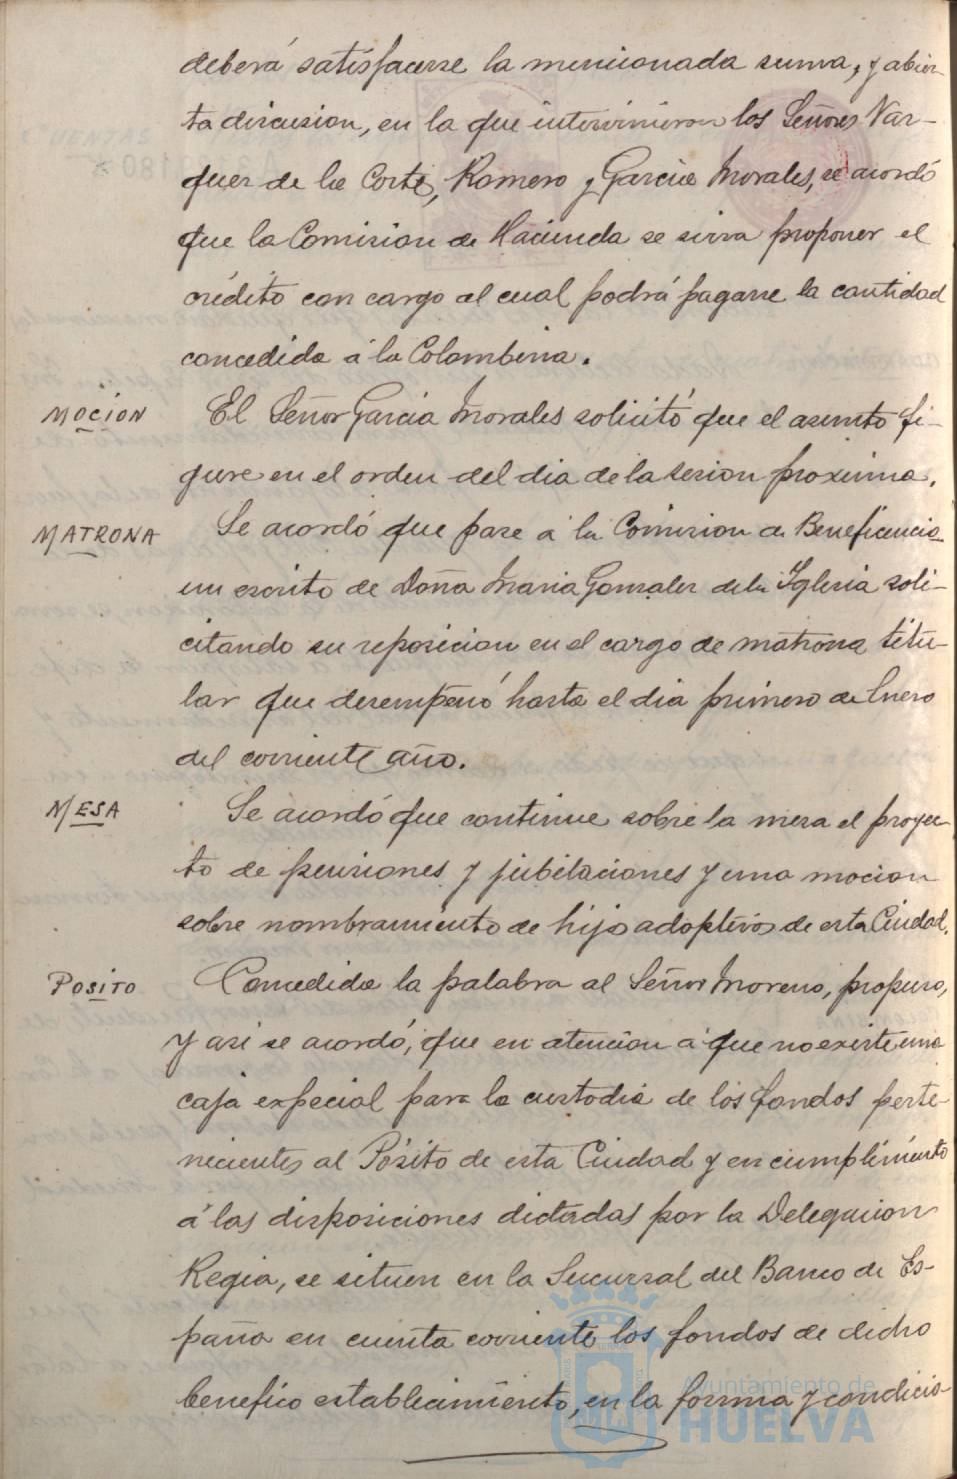 deberá satisfacerse la mencionada suma, y abier-
ta discusion, en la que intervinieron los Señores Vaz-
quez de la Corte, Romero y Garcia Morales, se acordó
que la Comision de Hacienda se sirva proponer el
crédito con cargo al cual podrá pagarse la cantidad
concedida á la Colombina.
MOCION
El Señor Garcia Morales solicitó que el asunto fi-
gure en el orden del dia de la sesion proxima.
MATRONA
Se acordó que pase á la Comision de Beneficencia
un escrito de Doña Maria Gonzalez de la Iglesia soli-
citando su reposicion en el cargo de matrona titu-
lar que desempeñó hasta el dia primero de Enero
del corriente año.
MESA
Se acordó que continue sobre la mesa el proyec-
to de pensiones y jubilaciones y una mocion
sobre nombramiento de hijos adoptivos de esta Ciudad.
POSITO
Concedida la palabra al Señor Moreno, propuso,
y asi se acordó, que en atencion á que no existe una
caja especial para la custodia de los fondos perte-
necientes al Pósito de esta Ciudad y en cumplimiento
á las disposiciones dictadas por la Delegacion
Regia, se situen en la Sucursal del Banco de Es-
paña en cuenta corriente los fondos de dicho
benefico establecimiento, en la forma y condicio-
Ayuntamiento de
HUELVA